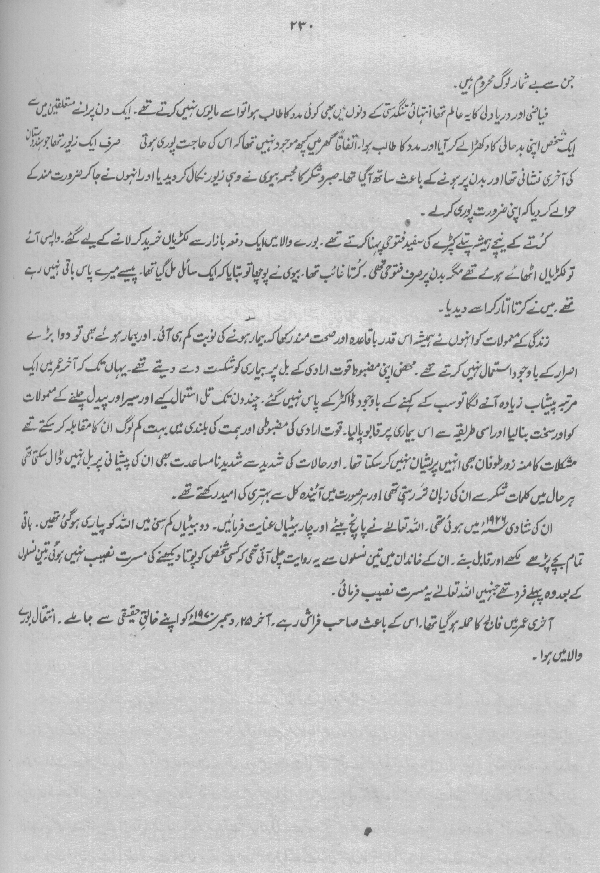 ۲۳۰
جن سے بے شمار لوگ محروم ہیں۔
فیاضی اور دریا دلی کا یہ عالم تھا انتہائی تنگدستی کے دنوں میں بھی کوئی مدد کا طالب ہوا تو اسے مایوس نہیں کرتے تھے۔ ایک دن پرانے متعلقین میں سے
ایک شخص اپنی بدحالی کا دکھڑا لے کر آیا اور مدد کا طالب ہوا۔ اتفاقاً گھر میں کچھ موجود نہیں تھا کہ اس کی حاجت پوری ہوتی صرف ایک زیور تھا جو
کی آخری نشانی تھا اور بدن پر ہونے کے باعث ساتھ آگیا تھا۔ صبر و شکر کا مجسم بیوی نے وہی زیور نکال کر دیدیا اور انہوں نے جا کر ضرورت مند کے
حوالے کر دیا کہ اپنی ضرورت پوری کر لے۔
کُرتے کے نیچے ہمیشہ پتلے کپڑے کی سفید فتوحی پہنا کرتے تھے۔ بورے والا میں ایک دفعہ بازار سے لکڑیاں خرید کر لانے کے لیے گئے۔ واپس آئے
تو لکڑیاں اٹھائے ہوئے تھے مگر بدن پر صرف فتوحی تھی۔ کُرتا غائب تھا۔ بیوی نے پوچھا تو بتایا کہ ایک سائل مل گیا تھا۔ پیسے میرے پاس باقی نہیں رہے
تھے، میں نے کرتا اتار کر اسے دیدیا۔
زندگی کے معمولات کو انہوں نے ہمیشہ اس قدر باقاعدہ اور صحت مند رکھا کہ بیمار ہونے کی نوبت کم ہی آئی۔ اور بیمار ہوئے بھی تو دوا بڑے
اصرار کے باوجود استعمال نہیں کرتے تھے۔ محض اپنی مضبوط قوت ارادی کے بل پر بیماری کو شکست دے دیتے تھے۔ یہاں تک کہ آخر عمر میں ایک
مرتبہ پیشاب زیادہ آنے لگا تو سب کے کہنے کے باوجود ڈاکٹر کے پاس نہیں گئے۔ چند دن تک تل استعمال کیے اور سیر اور پیدل چلنے کے معمولات
کو اور سخت بنا لیا اور اسی طریقہ سے اس بیماری پر قابو پا لیا۔ قوت ارادی کی مضبوطی اور ہمت کی بلندی میں بہت کم لوگ ان کا مقابلہ کر سکتے تھے
مشکلات کا منہ زور طوفان بھی انہیں پریشان نہیں کر سکتا تھا۔ اور حالات کی شدید سے شدید نامساعدت بھی ان کی پیشانی پر بل نہیں ڈال سکتی تھی
ہر حال میں کلمات شکر سے ان کی زبان تر رہتی تھی اور ہر صورت میں آئیندہ کل سے بہتری کی امید رکھتے تھے۔
ان کی شادی ۱۹۲۶ء میں ہوئی تھی۔ اللہ تعالےٰ نے پانچ بیٹے اور چار بیٹیاں عنایت فرمائیں۔ دو بیٹیاں کم سنی میں اللہ کو پیاری ہو گئی تھیں۔ باقی
تمام بچے پڑھے لکھے اور قابل بنے۔ ان کے خاندان میں تین نسلوں سے یہ روایت چلی آئی تھی کہ کسی شخص کو پوتا دیکھنے کی مسرت نصیب نہیں ہوئی تین نسلوں
کے بعد وہ پہلے فرد تھے جنہیں اللہ تعالےٰ نے یہ مسرت نصیب فرمائی۔
آخری عمر میں فالج کا حملہ ہو گیا تھا۔ اس کے باعث صاحب فراش رہے۔ آخر ۲۵؍ دسمبر ۱۹۷۰ء کو اپنے خالق حقیقی سے جا ملے۔ انتقال بورے
والا میں ہوا۔